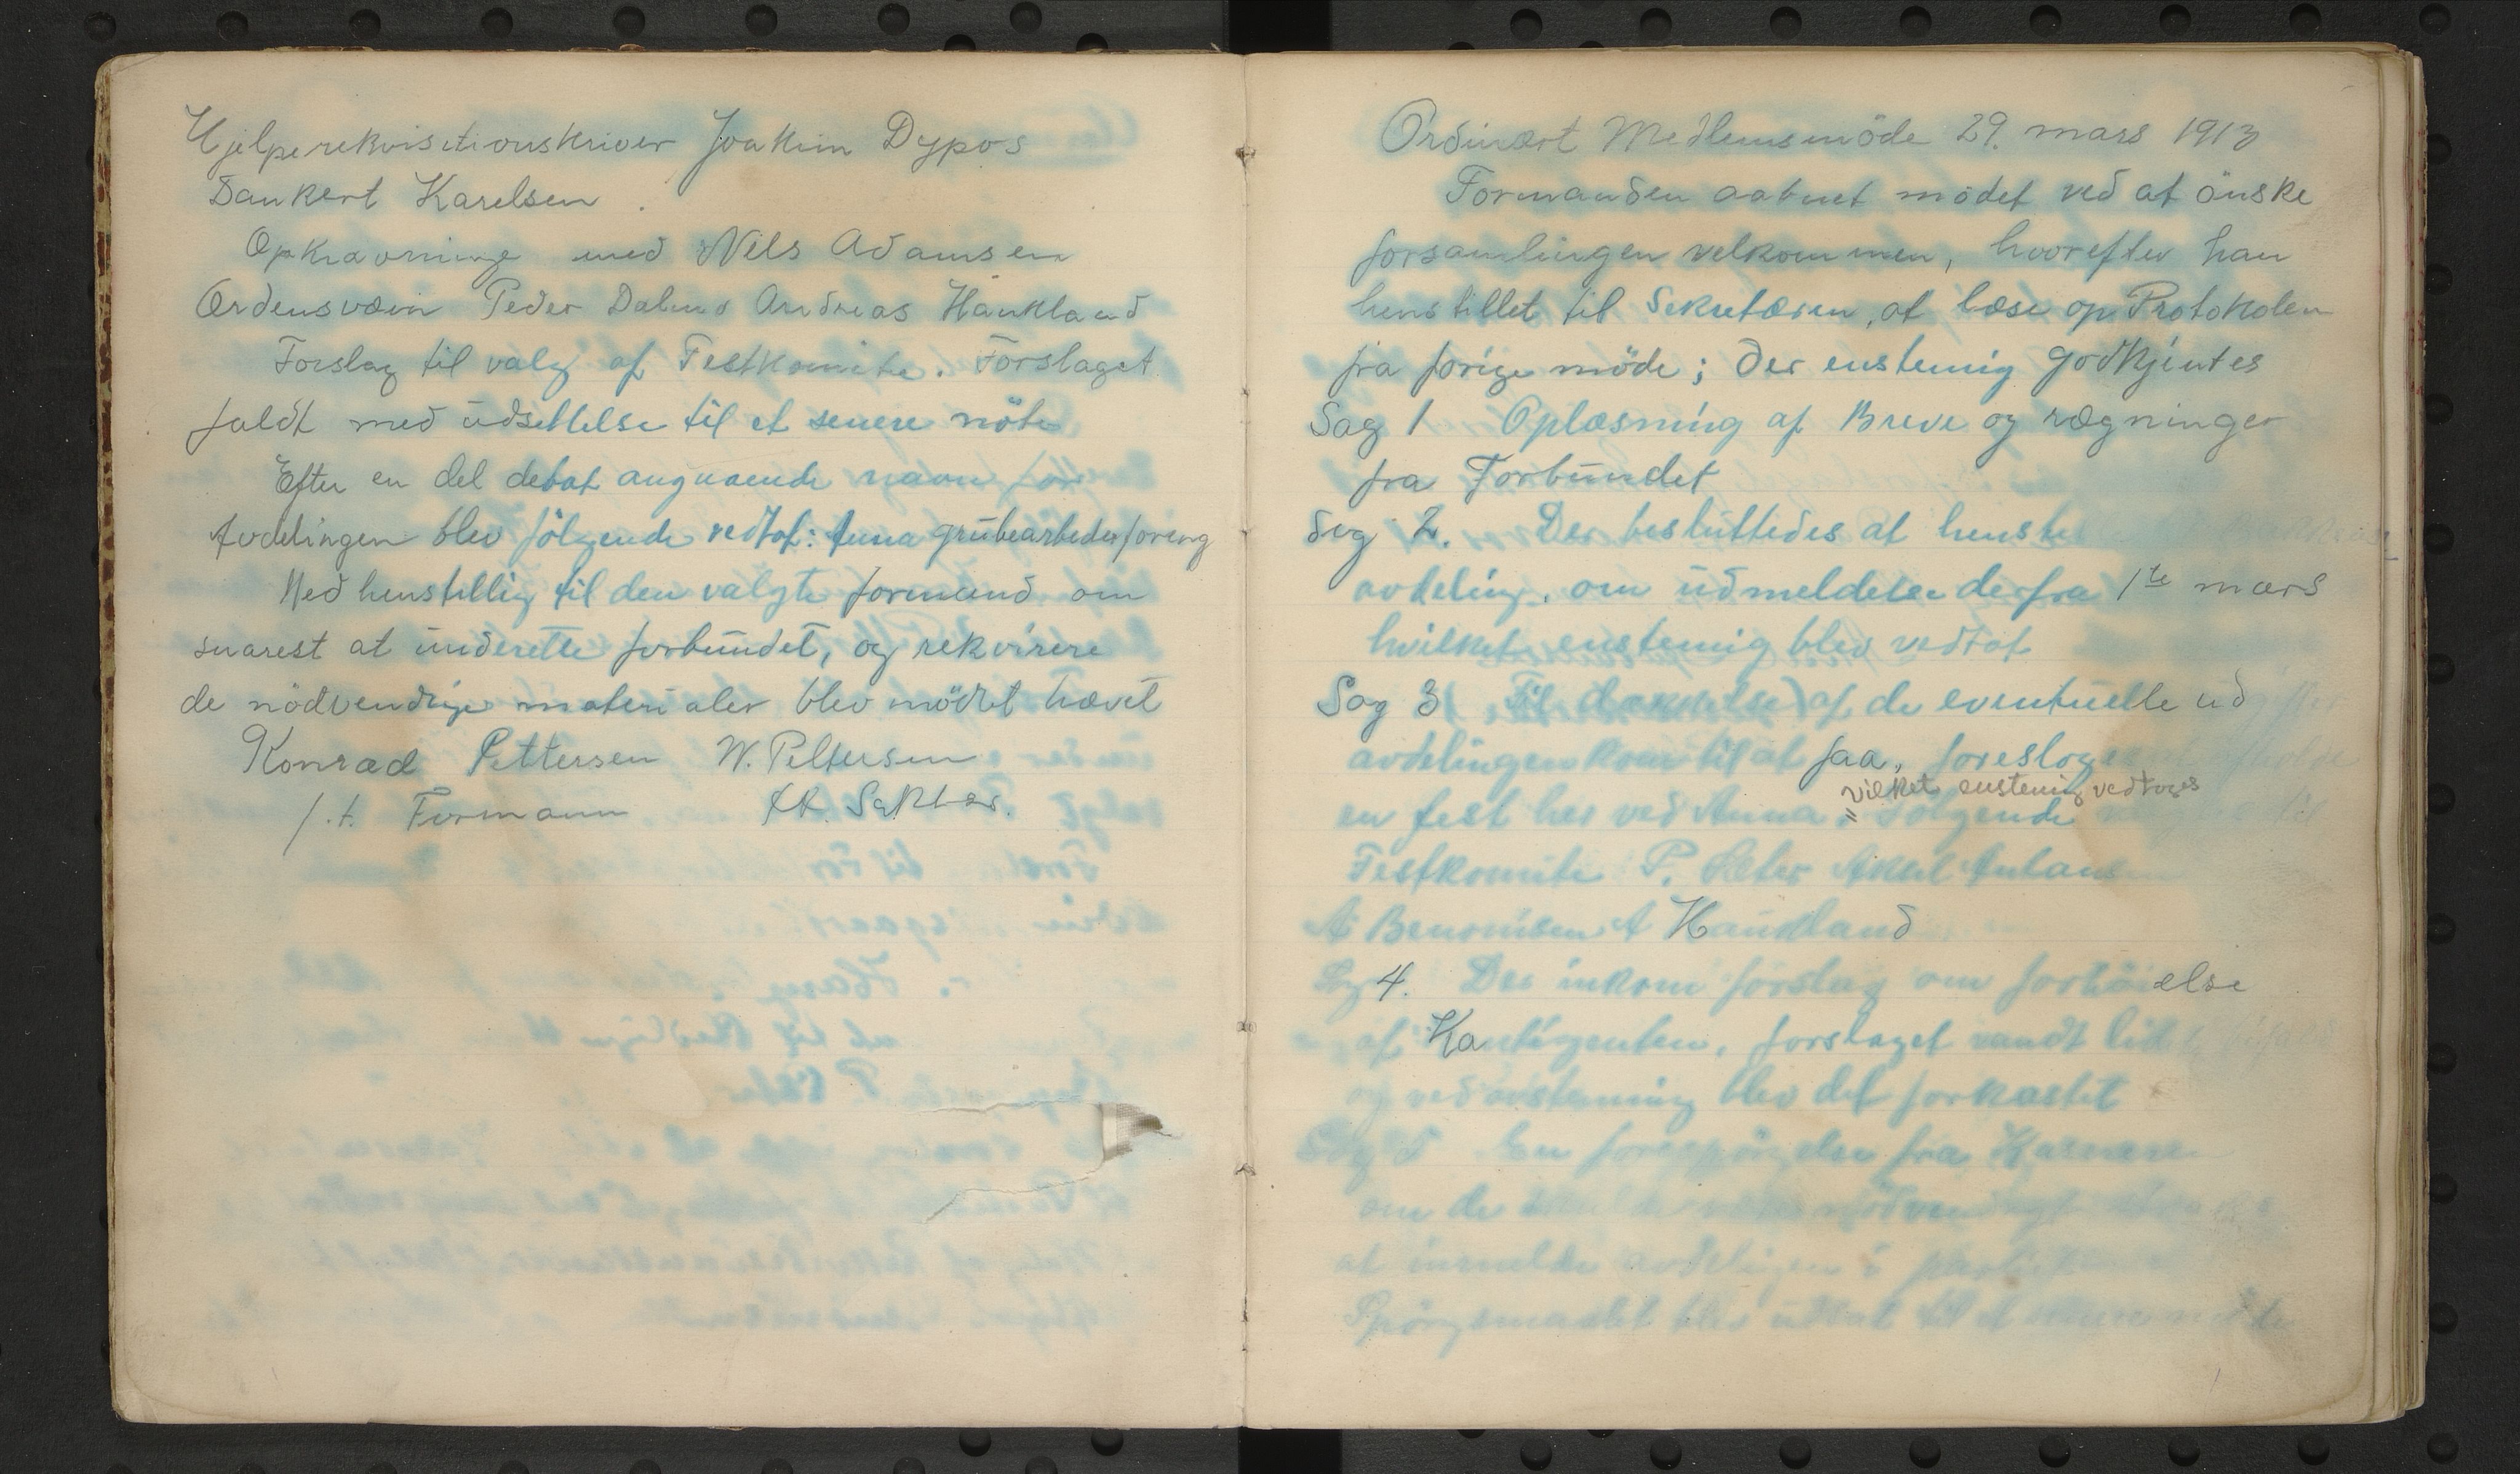 Hjelperekvisitionskriver Joakim Dypos
Dankert Karelsen
Opkrævning med Nils Adamsen
Ordensværn Peder Dalmo Andreas Haukland
Forslag til valg af Festkomite. Forslaget
faldt med udsettelse til et senere möte
Efter en del debat angaaende navn for
Avdelingen blev fölgende vedtat: Anna grubearbeiderforeing
Med henstillig til den valgte formand om
snarest at underette forbundet, og rekvirere
de nödvendige materialer blev mödet hævet
Konrad Pettersen W. Pettersen
f.t. Formann Sekter.
Ordinært Medlemsmöde 29. mars 1913
Formanden aabnet mödet ved at önske
forsamlingen velkommen, hvorefter han
henstillet til Sekretæren, at læse op Protokolen
fra forige möde; der enstemig godkjentes
Sag 1 Oplæsning af Breve og rægninger
fra Forbundet
Sag 2. Der besluttedes at henste
avdeling. om udmeldelse derfra 1te mars
hvilket enstemig blev vedtat
Sag 3 Til dækkelse af de eventuelle ud
avdelingen kom til at faa, foresloges
vilket enstemig vedtoges
en fest her ved Anna, Fölgende
Festkomite P. Sæter Aksel
A Benonisen A Haukland
Sag 4. Der inkom forslag om forhöielse
af Kontigenten, forslaget vandt lidt
og ved avstemning blev det forkastet
Sag 5 En forespörgelse fra
om de nödvendigt
at inmelde avdelingen i
Spörgsmaalet blev udsat til et senere möte